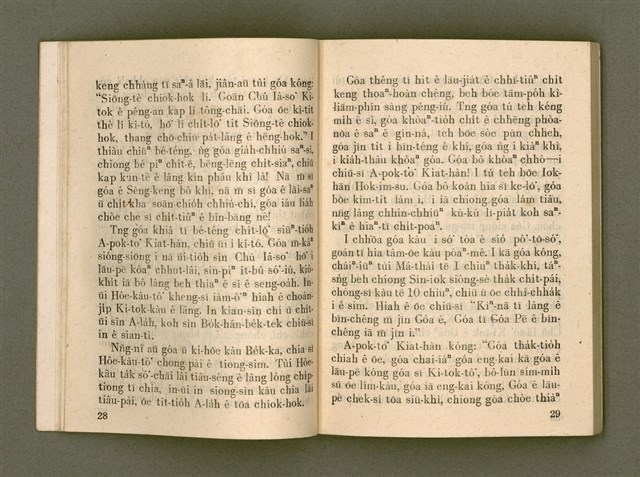 keng chháng tī saⁿ-á lāi, jiân-aū tùi góa kóng:
"Siōng-tè chiok-hok lí. Goān Chú Iâ-so͘ Ki-
tok ê pêng-an kap lí tông-chāi. Góa ōe kì-tit
thè lí kî-tó, hō͘ lí chit-lō͘ tit Siōng-tè chiok-
hok, thang chò-chiū pa̍t-lâng ê hēng-hok." I
thiàu chiūⁿ bé-téng, n̂g góa gia̍h-chhiú saⁿ-sî,
chiong bé piⁿ chi̍t-ē, bēng-lēng chi̍t-siaⁿ, chiū
kap kun-tè ê lâng kín pháu khì là! Nā m̄ sī
góa ê Sèng-keng bô khì, nā m̄ sī góa ê lāi-saⁿ
ū chi̍t-kha soān-chio̍h chhiú-chí, góa iáu lia̍h
chòe che sī chi̍t-tiûⁿ ê bîn-bāng nè!
Tng góa khiā tī bé-téng chi̍t-lō͘ siūⁿ-tio̍h
A-pok-to͘ Kiat-hàn, chiū ūi i kî-tó. Góa m̄-káⁿ
siông-siông i nā ūi-tio̍h sìn Chú Iâ-so͘ hō͘ i
lāu-pē kóaⁿ chhut-lâi, sin-piⁿ it-bû só͘-iú, kiò-
khit iā bô lâng beh thiaⁿ ê sî ê seng-oa̍h. In-
ūi Hôe-kàu-tô͘ kheng-sī iàm-ò͘ⁿ hiah ê choán-
ji̍p Ki-tok-kàu ê lâng. In kian-sìn chí ū chi̍t-
ūi sîn A-la̍h, koh sìn Bo̍k-hán-be̍k-tek chiū-sī
in ê sian-ti.
Nn̄g-nî aū góa ū ki-hōe kàu Be̍k-ka, chia sī
Hôe-kàu-tô͘ chong-pài ê tiong-sim. Tùi Hôe-
kàu ta̍k só͘-chāi lâi tiâu-sèng ê lâng lóng chi̍p-
tiong tī chia, in-ūi in siong-sìn kàu chia lâi
tiâu-pài, ōe tit-tio̍h A-la̍h ê tōa chiok-hok.
28
Góa thêng tī hit ê lāu-jia̍t ê chhī-tiûⁿ chi̍t
keng thoaⁿ-hoàn chêng, beh bóe tām-po̍h kì-
liām-phín sàng pêng-iú. Tng góa tú teh kéng
mi̍h ê sî, góa khòaⁿ-tio̍h chi̍t ê chhēng phòa-
nōa ê saⁿ ê gín-ná, teh bóe sòe pùn chheh,
góa jīn tit i bīn-téng ê khì, góa ǹg i kiâⁿ khì,
i kia̍h-thâu khòaⁿ góa. Góa bô khòaⁿ chhò—i
chiū-sī A-pok-to͘ Kiat-hàn! I tú teh bóe Iok-
hān Hok-im-su. Góa bô koán hia sī ke-lō͘, góa
bóe kìm-tit lám i, i iā chiong góa lám tiâu,
nn̄g lâng chhin-chhiūⁿ kú-kú lī-pia̍t koh saⁿ-
kìⁿ ê hiaⁿ-tī chi̍t-poaⁿ.
I chhōa góa kàu i só͘ tòa ê sió pò͘-tô-só͘,
goán tī hia tâm-ōe kàu pòaⁿ-mê. I kā góa kóng,
chāi-iūⁿ tùi Má-thài tē I chiuⁿ tha̍k-khí, táⁿ-
sǹg beh chiong Sin-iok siông-sè tha̍k chi̍t-pái,
chóng-sī kàu tē 10 chiuⁿ, chiū ū ōe chhì-chha̍k
i ê sim. Hiah ê ōe chiū-sī "Kìⁿ-nā tī lâng ê
bīn-chêng m̄ jīn Góa ê, Góa tī Góa Pē ê bīn-
chêng iā m̄ jīn i."
A-pok-to͘ Kiat-hàn kóng: "Góa tha̍k-tio̍h
chiah ê ōe, góa chai-iáⁿ góa eng-kai kā góa ê
lāu-pē kóng góa sī Ki-tok-tô͘, bô-lūn sím-mih
sū ōe lîm-kàu, góa iā eng-kai kóng, Góa ê lāu-
pē chek-sî tōa siū-khì, chiong góa chòe thiàⁿ
29